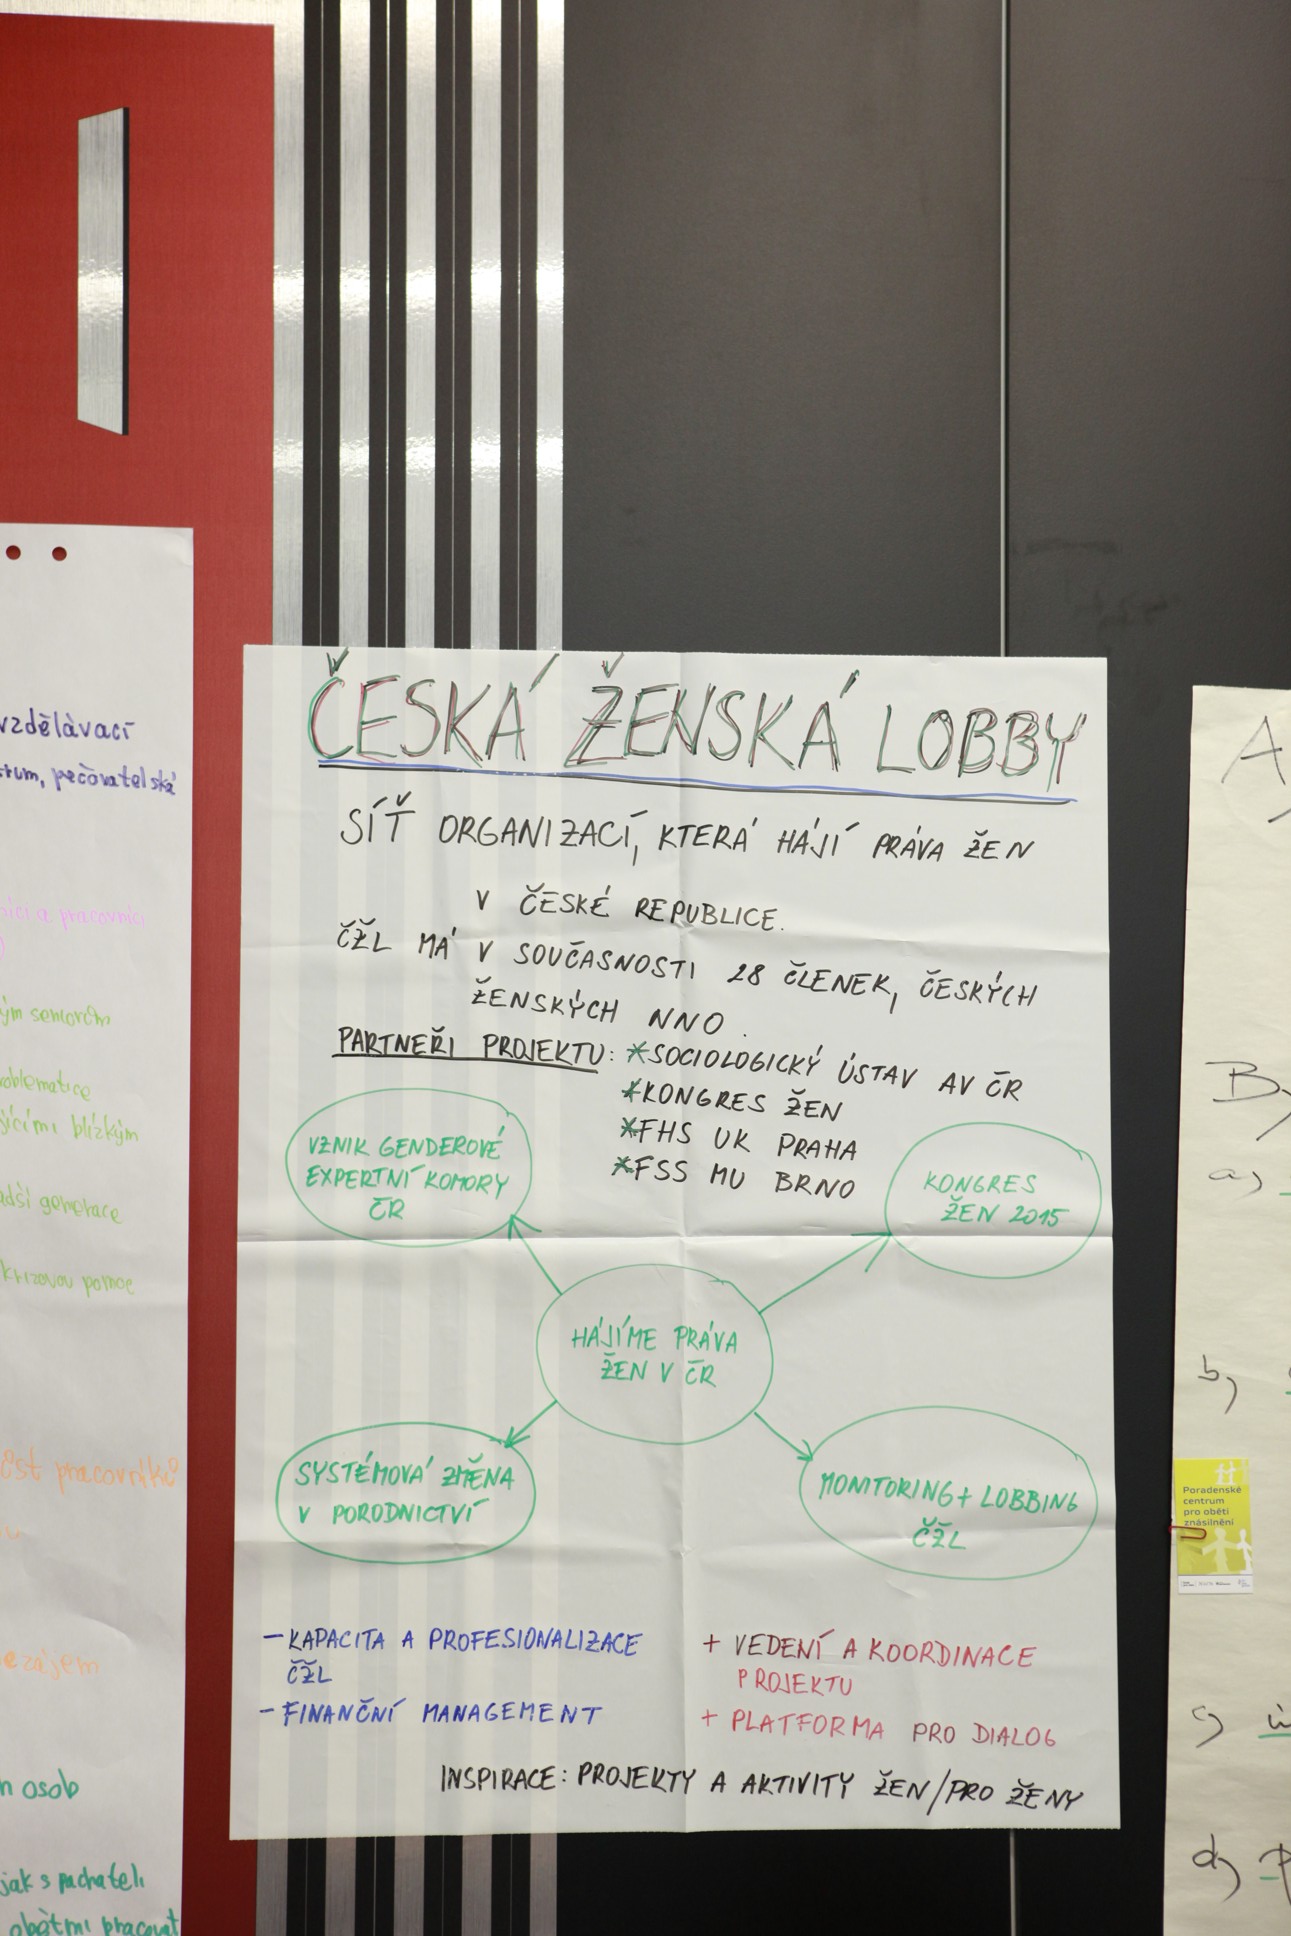 vzdělávací
pečovatelská
a pracovníci
seniorům
blízkým
generace
krizovou pomoc
pracovníků
osob
jak s pachateli
obětmi pracovat
ČESKÁ ŽENSKÁ LOBBY
SÍŤ ORGANIZACÍ, KTERÁ HÁJÍ PRÁVA ŽEN
V ČESKÉ REPUBLICE.
ČŽL MÁ V SOUČASNOSTI 28 ČLENEK, ČESKÝCH
ŽENSKÝCH NNO.
PARTNEŘI PROJEKTU: *SOCIOLOGICKÝ ÚSTAV AV ČR
*KONGRES ŽEN
*FHS UK PRAHA
*FSS MU BRNO
VZNIK GENDEROVÉ
EXPERTNÍ KOMORY
ČR
KONGRES
ŽEN 2015
HÁJÍME PRÁVA
ŽEN V ČR
SYSTÉMOVÁ ZMĚNA
V PORODNICTVÍ
MONITORING + LOBBING
ČŽL
- KAPACITA A PROFESIONALIZACE
ČŽL
- FINANČNÍ MANAGEMENT
+ VEDENÍ A KOORDINACE
PROJEKTU
+ PLATFORMA PRO DIALOG
INSPIRACE: PROJEKTY A AKTIVITY ŽEN/PRO ŽENY
A
B)
a)
b)
Poradenské
centrum
pro oběti
znásilnění
c)
d)